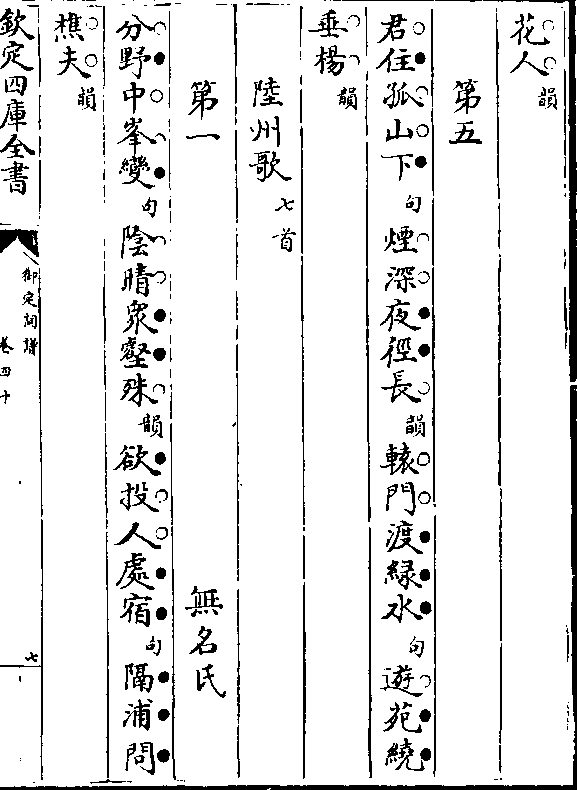 花人韻
第五
君住孤山下句煙深夜徑長韻轅門渡緑水句遊苑繞
垂楊韻
陸州歌七首
第一 無名氏
分野中峯變句陰晴衆壑殊韻欲投人處宿句隔浦問
樵夫韻
欽定四庫全書
御定詞譜
卷四十
七